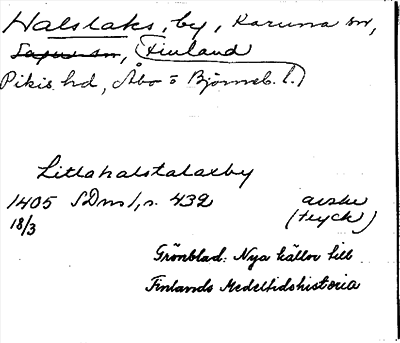 Halslaks, by, Karuna sn,
Sagu sn, Finland
Pikis hd, Åbo o Björneb. l.)
Litlahalstalaxby
1405 SDns 1, s. 432 avskr
18/3 (tryck)
Grönblad: Nya källor till
Finlands Medeltidshistoria